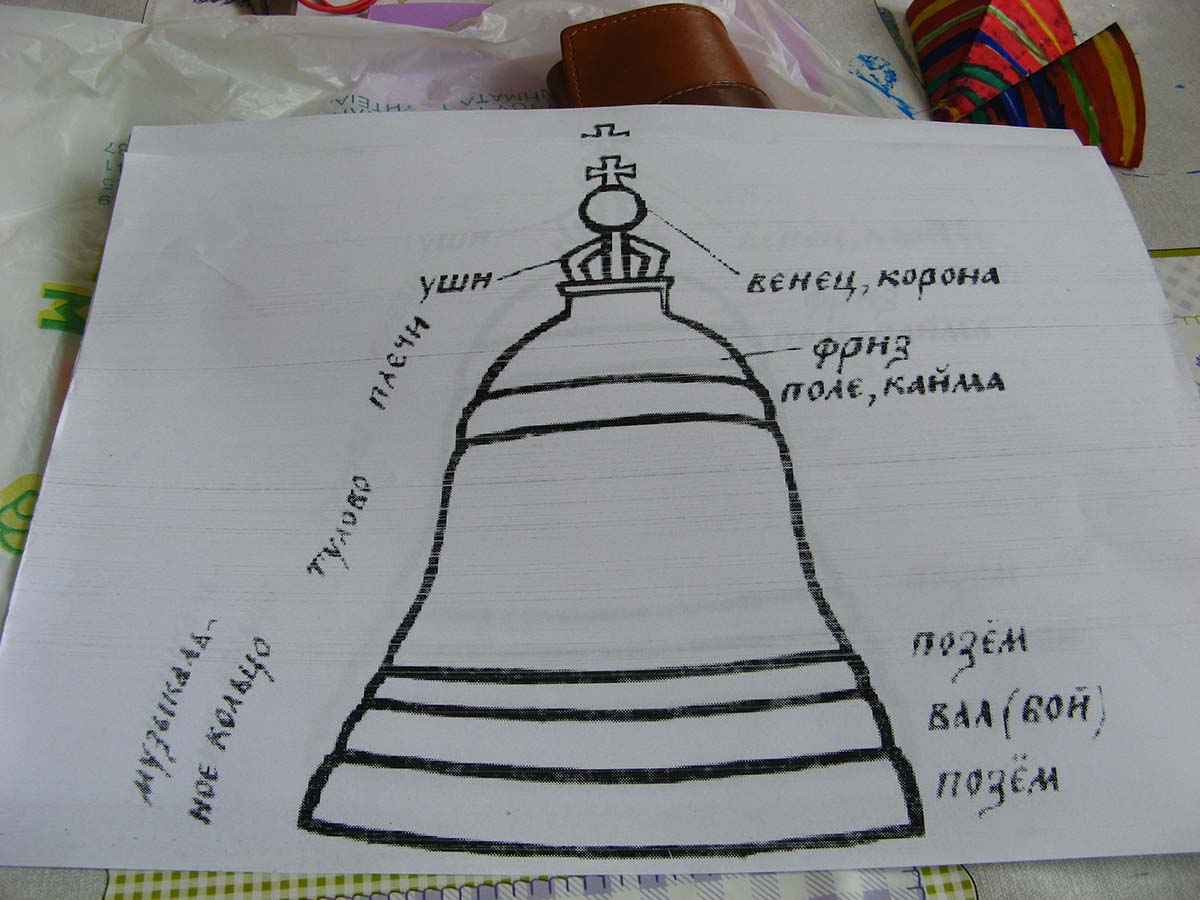 уши
венец, корона
плечи
фриз
поле, кайма
тулово
музыкаль-
ное кольцо
позём
вал (бой)
позём
М